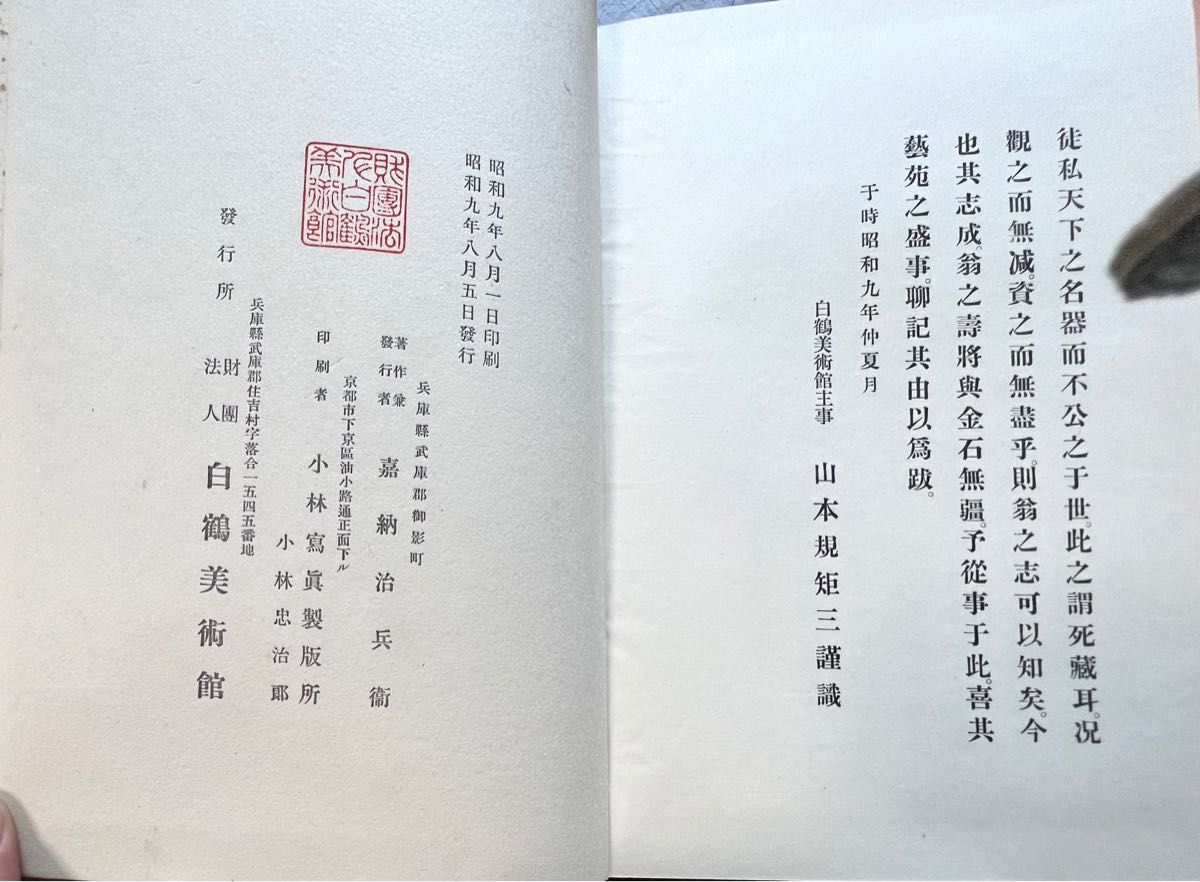 徒私天下之名器而不公之于世。此之謂死藏耳。况
觀之而無減。資之而無盡乎。則翁之志可以知矣。今
也其志成。翁之壽將與金石無疆。予從事于此。喜其
藝苑之盛事。聊記其由以爲跋。
于時昭和九年仲夏月
白鶴美術館主事　山本規矩三謹識
昭和九年八月一日印刷
昭和九年八月五日發行
財團法
人白鶴
美術館
兵庫縣武庫郡御影町
著作兼發行者　嘉納治兵衞
京都市下京區油小路通正面下ル
印刷者　小林寫眞製版所
小林忠治郎
兵庫縣武庫郡住吉村字落合一五四五番地
發行所　財團法人　白鶴美術館